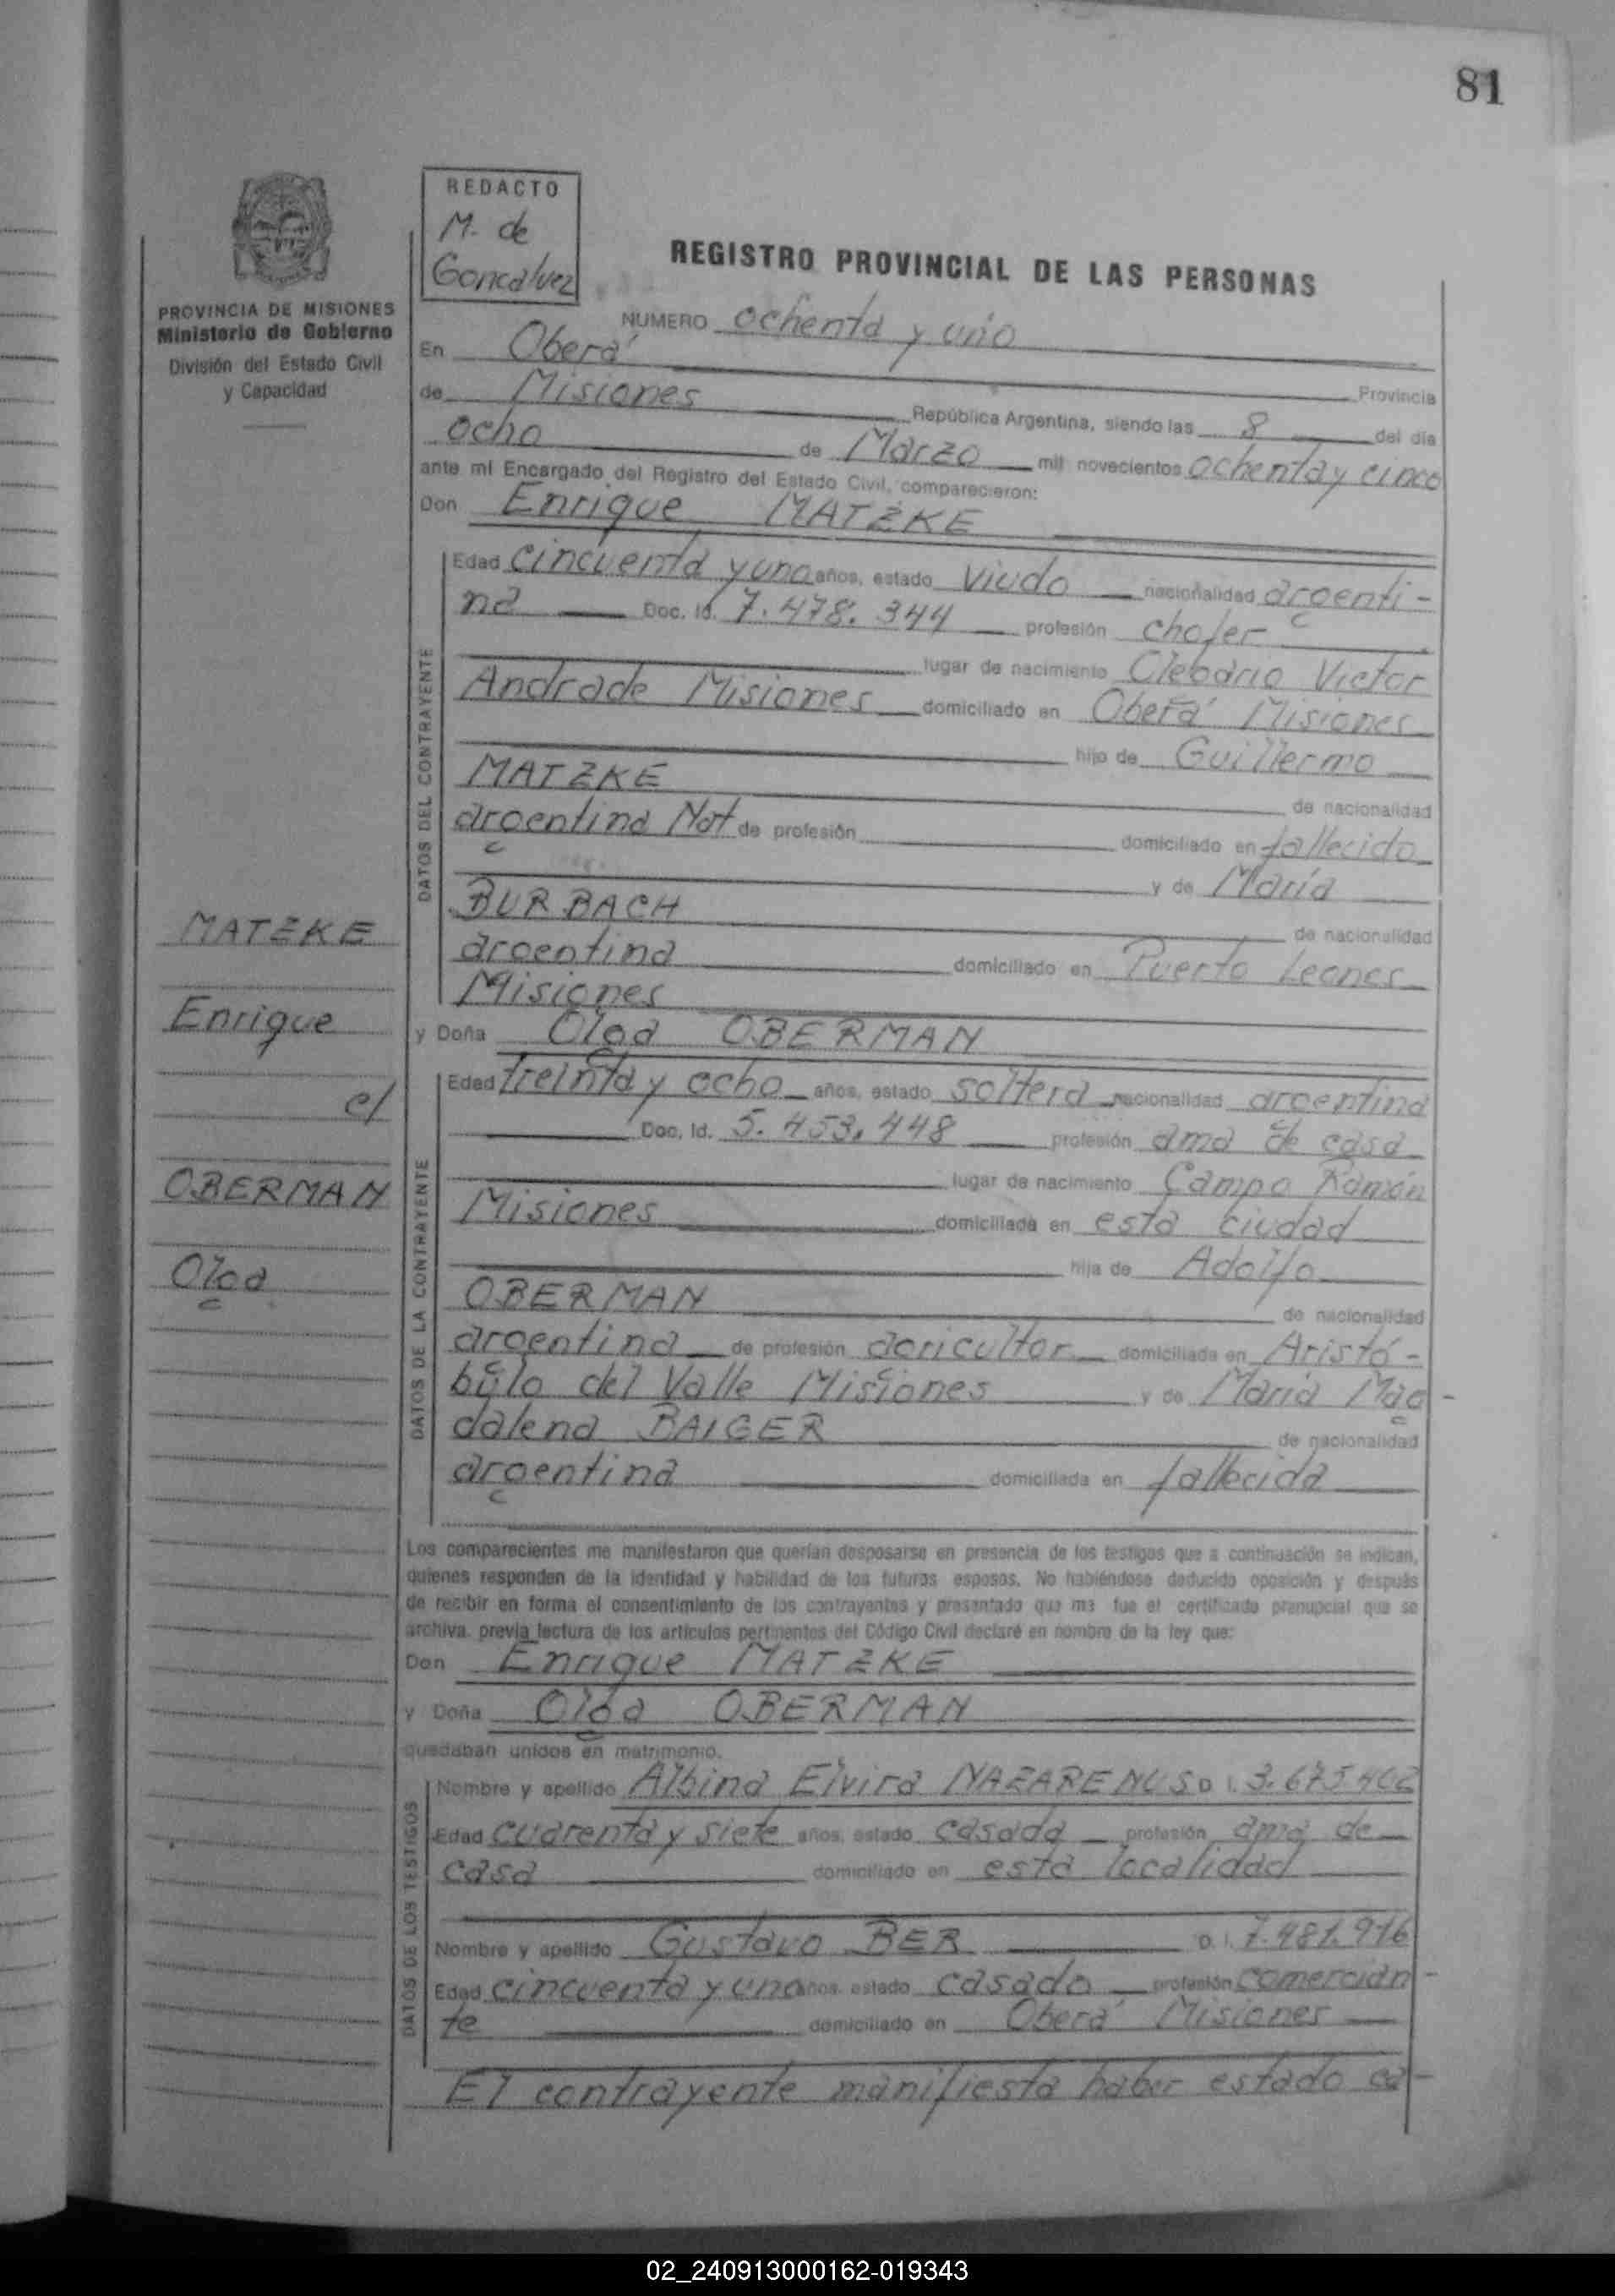 81
REDACTO
M. de
Goncalvez
PROVINCIA DE MISIONES
Ministerio de Gobierno
División del Estado Civil
y Capacidad
REGISTRO PROVINCIAL DE LAS PERSONAS
NUMERO ochenta y uno
En Oberá
Provincia
de Misiones República Argentina, siendo las 8 del día
ocho de Marzo mil novecientos ochenta y cinco
ante mí Encargado del Registro del Estado Civil, comparecieron:
Don Enrique MATZKE
DATOS DEL CONTRAYENTE
Edad cincuenta y uno años, estado Viudo nacionalidad argenti-
na Doc. Id. 7.478.344 profesión chofer
lugar de nacimiento Olegario Victor
Andrade Misiones domiciliado en Oberá Misiones
hijo de Guillermo
MATZKE de nacionalidad
argentina Nat de profesión domiciliado en fallecido
y de María
BURBACH de nacionalidad
argentina domiciliado en Puerto Leones
Misiones
y Doña Olga OBERMAN
DATOS DE LA CONTRAYENTE
Edad treinta y ocho años, estado soltera nacionalidad argentina
Doc. Id. 5.453.448 profesión ama de casa
lugar de nacimiento Campo Ramón
Misiones domiciliada en esta ciudad
hija de Adolfo
OBERMAN de nacionalidad
argentina de profesión agricultor domiciliada en Aristó-
bulo del Valle Misiones y de María Mag-
dalena BAIGER de nacionalidad
argentina domiciliada en fallecida
MATZKE
Enrique
c/
OBERMAN
Olga
Los comparecientes me manifestaron que querían desposarse en presencia de los testigos que a continuación se indican,
quienes responden de la identidad y habilidad de los futuros esposos. No habiéndose deducido oposición y después
de recibir en forma el consentimiento de los contrayentes y presentado que me fue el certificado prenupcial que se
archiva, previa lectura de los artículos pertinentes del Código Civil declaré en nombre de la ley que:
Don Enrique MATZKE
y Doña Olga OBERMAN
quedaban unidos en matrimonio.
DATOS DE LOS TESTIGOS
Nombre y apellido Albina Elvira NAZARENUS D. I. 3.675.402
Edad cuarenta y siete años, estado casada profesión ama de
casa domiciliado en esta localidad
Nombre y apellido Gustavo BER D. I. 7.481.916
Edad cincuenta y uno años, estado casado profesión comercian-
te domiciliado en Oberá Misiones
El contrayente manifiesta haber estado ca-
02_240913000162-019343